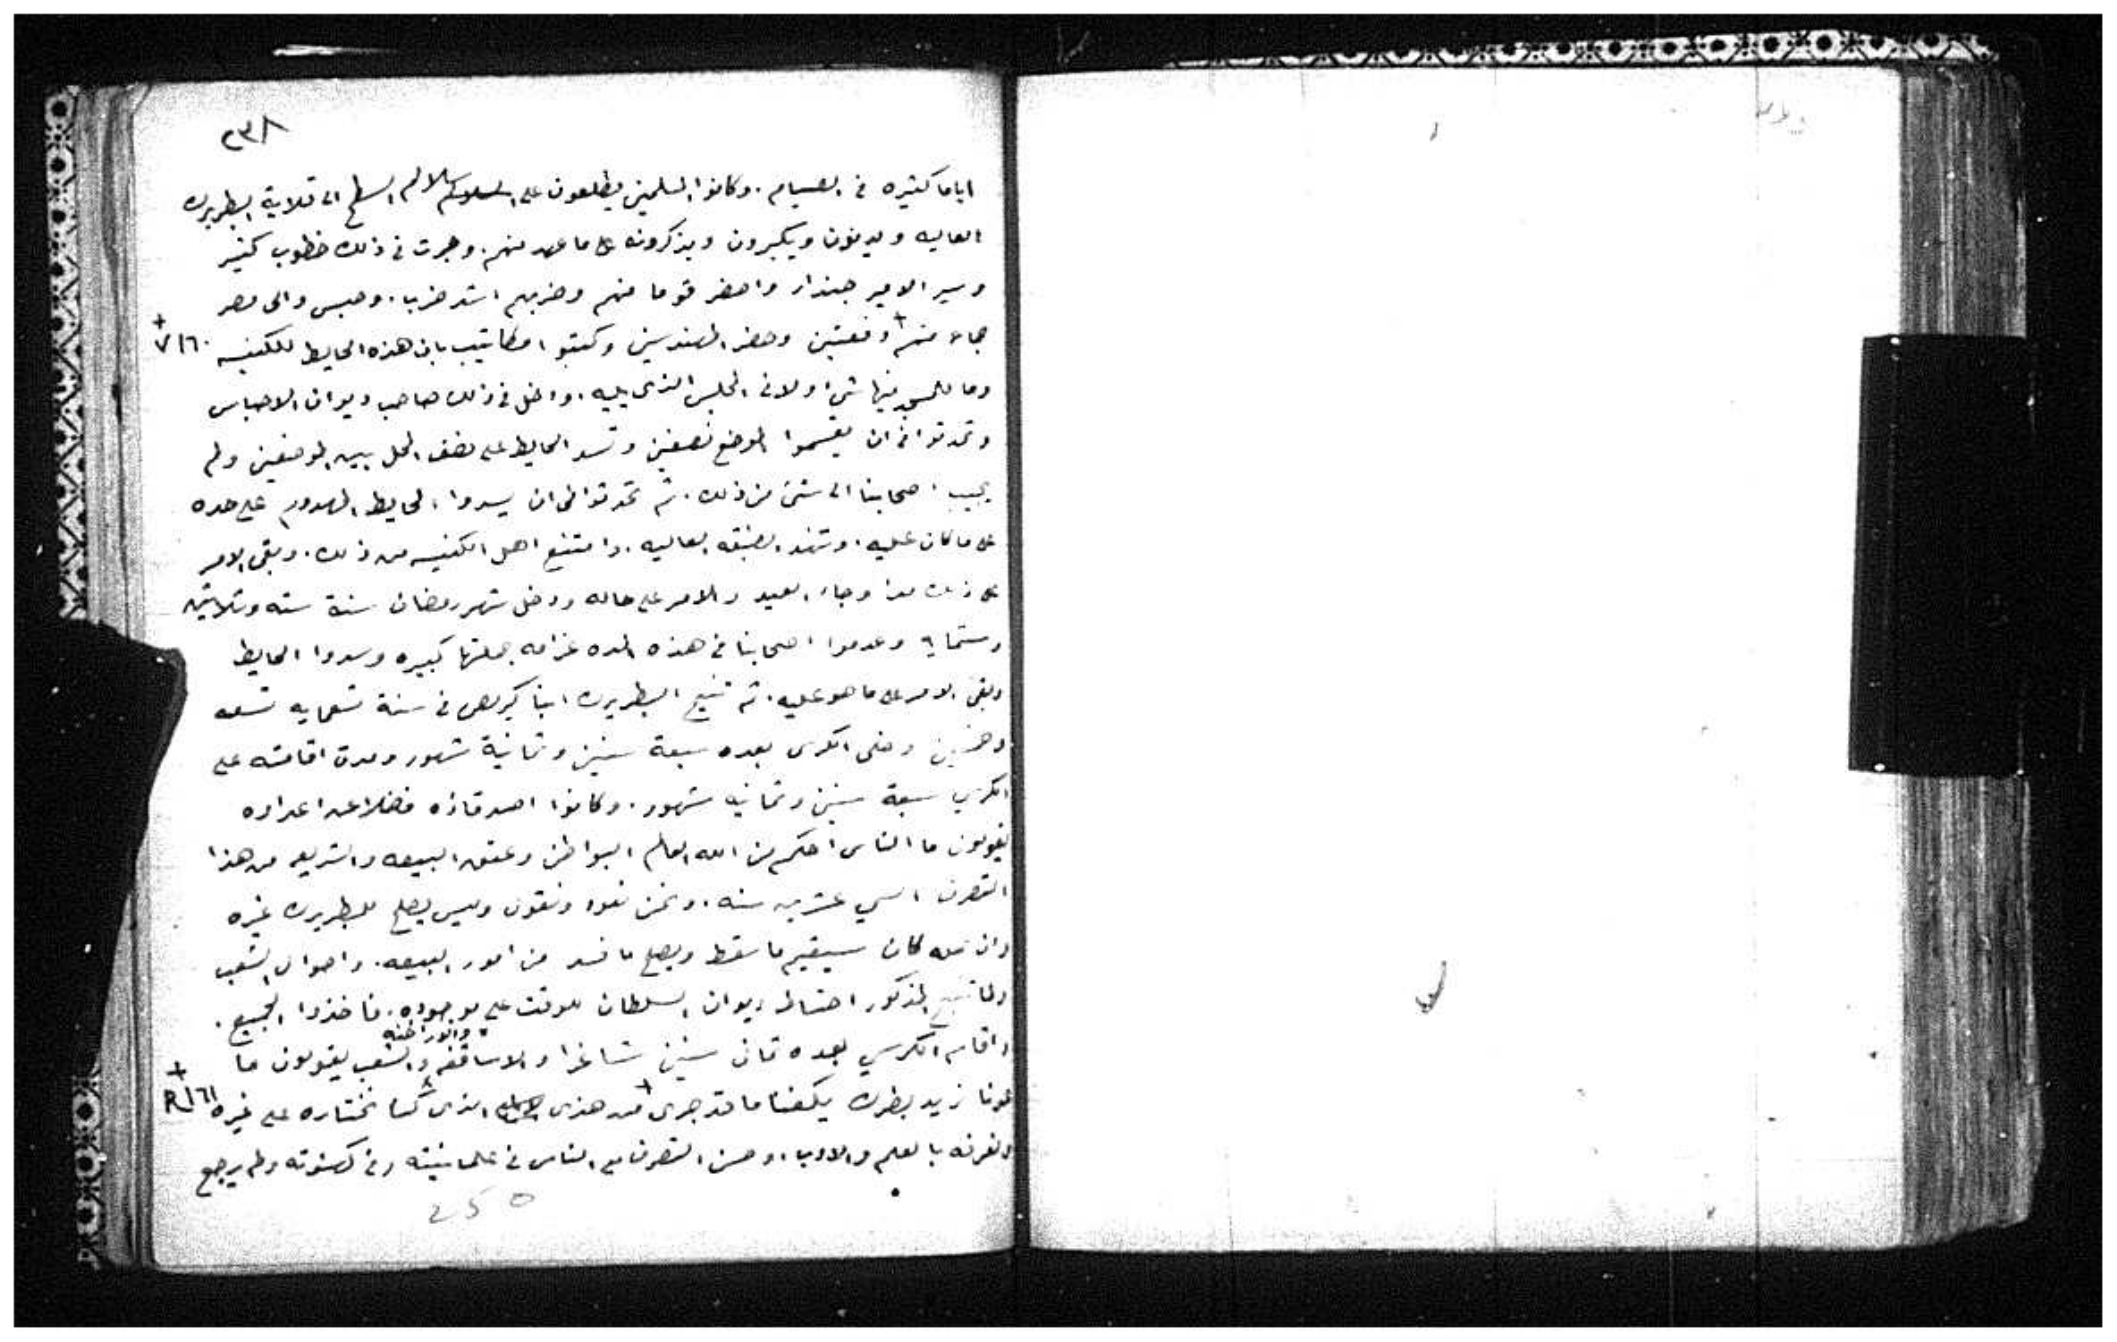 ٢٣٨
اياما كثيره في الصيام . وكانوا المسلمين يطلعون على السلالم السطح الى قلاية البطريرك
العاليه ويدنون ويكبرون ويذكرونه على ما عهد منهم . وجرت في ذلك خطوب كثير
وسير الامير جندار واحضر قوما منهم وضربهم اشد ضرب . وحبس والى مصر
جماعه منهم دفعتين وحضر المهندسين وكتبوا مكاتيب بان هذه الحايط للكنيسه
V 160
وما للمسجد فيها شيء ولا في المجلس الذي يليه . وادخل في ذلك صاحب ديوان الاحباس
وتحدثوا في ان يقسموا الموضع نصفين وتسد الحايط على نصف المحل بين الموضعين ولم
يجيب اصحابنا الى شئ من ذلك . ثم تحدثوا في ان يسدوا الحايط المهدوم على حده
على ما كان عليه . وتهد الطبقه العاليه . وامتنع اهل الكنيسه من ذلك . وبقى الامر
على ذلك وجاء العيد والامر على حاله ودخل شهر رمضان سنة سته وثلاثين
وستمايه وعدموا اصحابنا في هذه المده غرامه جملتها كبيره وسدوا الحايط
وبقى الامر على ما هو عليه . ثم تنيح البطريرك انبا كيرلص في سنة تسعمايه تسعه
وخمسين وخلى الكرسي بعده سبعة سنين وثمانية شهور ومدة اقامته على
الكرسي سبعة سنين وثمانيه شهور . وكانوا اصدقاؤه فضلا عن اعداوه
يقولون ما الناس احكم من الله العالم البواطن وعتق البيعه والشريعه من هذا
التصرف السي عشرين سنه . ونحن نعود ونقول وليس يصلح للبطريرك غيره
وان لعله كان سيقيم ما سقط ويصلح ما فسد من امور البيعه . واحوال الشعب
ولما تنيح المذكور احتاط ديوان السلطان للوقت على موجوده . فاخذوا الجميع .
واقام الكرسي بعده ثمان سنين شاغرا والاساقفه والاراخنه والشعب يقولون ما
عدنا نريد بطرك يكفنا ما قد جرى من هذى الذى كنا نختاره على غيره
R 161
ونعرفه بالعلم والادب وحسن التصرف مع الناس في علمانيته وفى كهنوته ولم يرجع